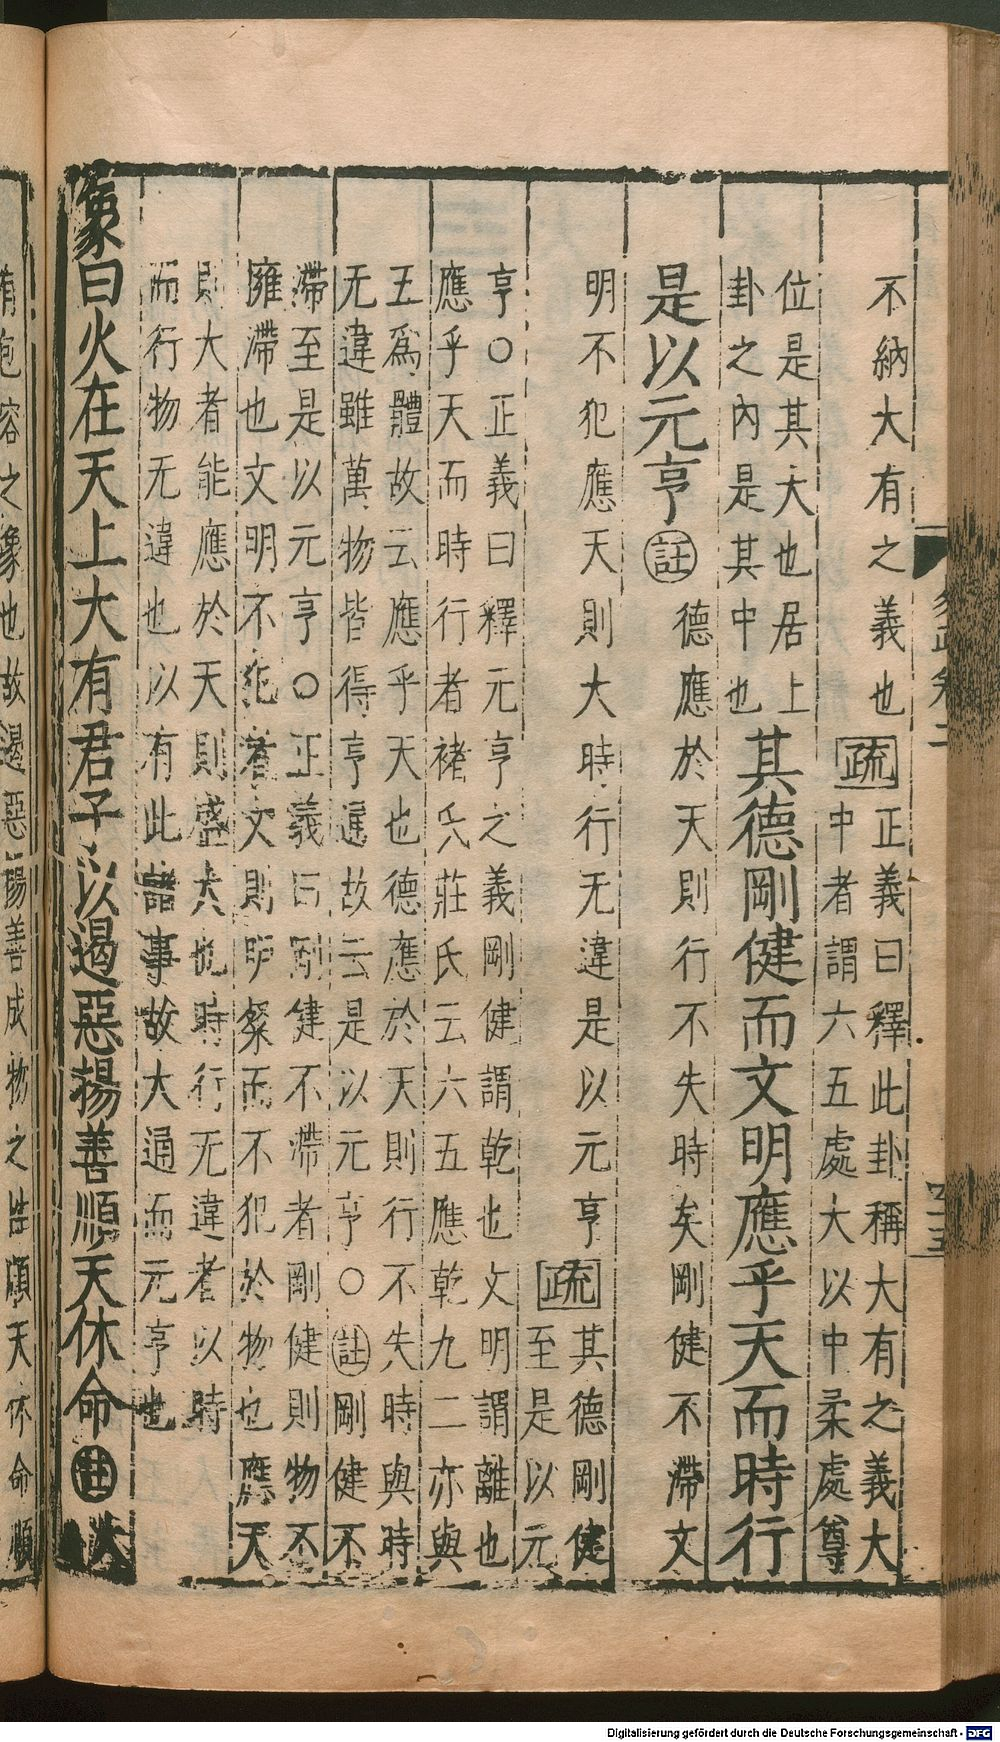 不納大有之義也疏正義曰釋此卦稱大有之義大
中者謂六五處大以中柔處尊
位是其大也居上
卦之內是其中也其德剛健而文明應乎天而時行
是以元亨註德應於天則行不失時矣剛健不滯文
明不犯應天則大時行无違是以元亨疏其德剛健
至是以元
亨○正義曰釋元亨之義剛健謂乾也文明謂離也
應乎天而時行者褚氏莊氏云六五應乾九二亦與
五爲體故云應乎天也德應於天則行不失時與時
无違雖萬物皆得亨通故云是以元亨○註剛健不
滯至是以元亨○正義曰剛健不滯者剛健則物不
擁滯也文明不犯者文則明粲而不犯於物也應天
則大者能應於天則盛大也時行无違者以時
而行物无違也以有此諸事故大通而元亨也
象曰火在天上大有君子以遏惡揚善順天休命註大
有包容之象也故遏惡揚善成物之性順天休命順
Digitalisierung gefördert durch die Deutsche Forschungsgemeinschaft - DFG